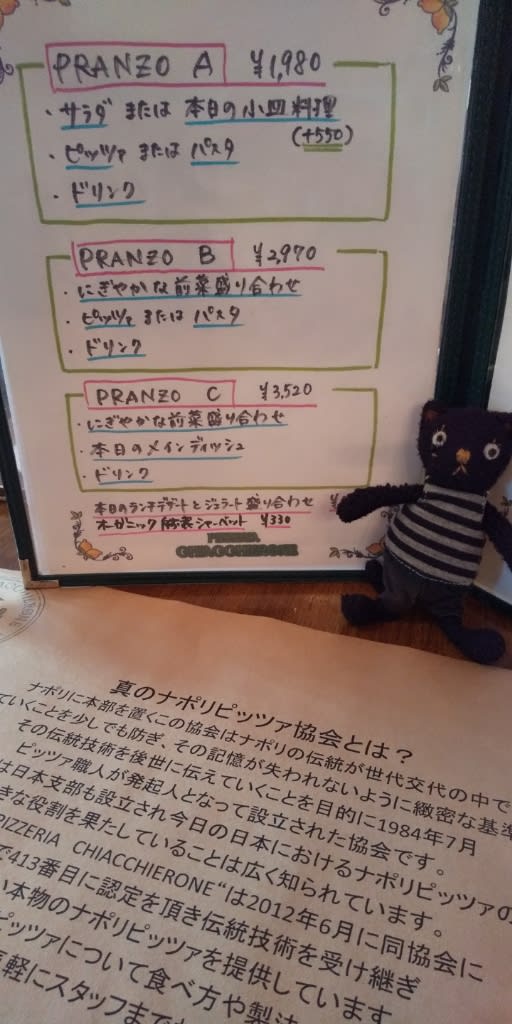 PRANZO A ¥1,980
・サラダ または 本日の小皿料理
(+550)
・ピッツァ または パスタ
・ドリンク
PRANZO B ¥2,970
・にぎやかな前菜盛り合わせ
・ピッツァ または パスタ
・ドリンク
PRANZO C ¥3,520
・にぎやかな前菜盛り合わせ
・本日のメインディッシュ
・ドリンク
本日のランチデザートとジェラート盛り合わせ
オーガニック抹茶シャーベット ¥330
CHIACCHIERONE
真のナポリピッツァ協会とは?
ナポリに本部を置くこの協会はナポリの伝統が世代交代の中で
ていくことを少しでも防ぎ、その記憶が失われないように緻密な基準
その伝統技術を後世に伝えていくことを目的に1984年7月
ピッツァ職人が発起人となって設立された協会です。
は日本支部も設立され今日の日本におけるナポリピッツァの
きな役割を果たしていることは広く知られています。
PIZZERIA CHIACCHIERONE"は2012年6月に同協会に
で413番目に認定を頂き伝統技術を受け継ぎ
い本物のナポリピッツァを提供しています
ピッツァについて食べ方や製法
軽にスタッフまで